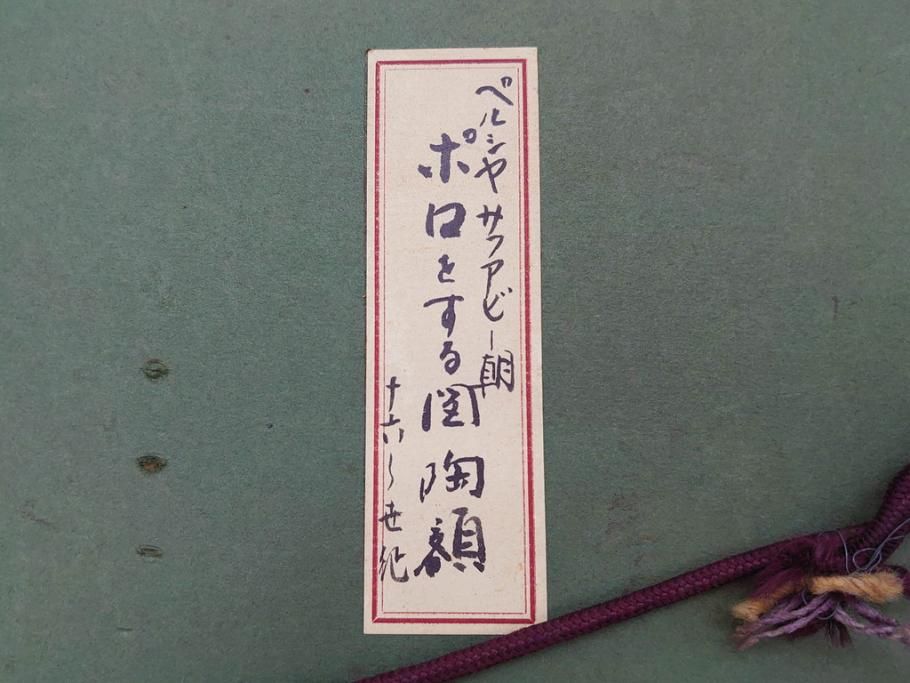 ペルシヤ サフアビー朝
ポロをする図 陶額
十六 世紀